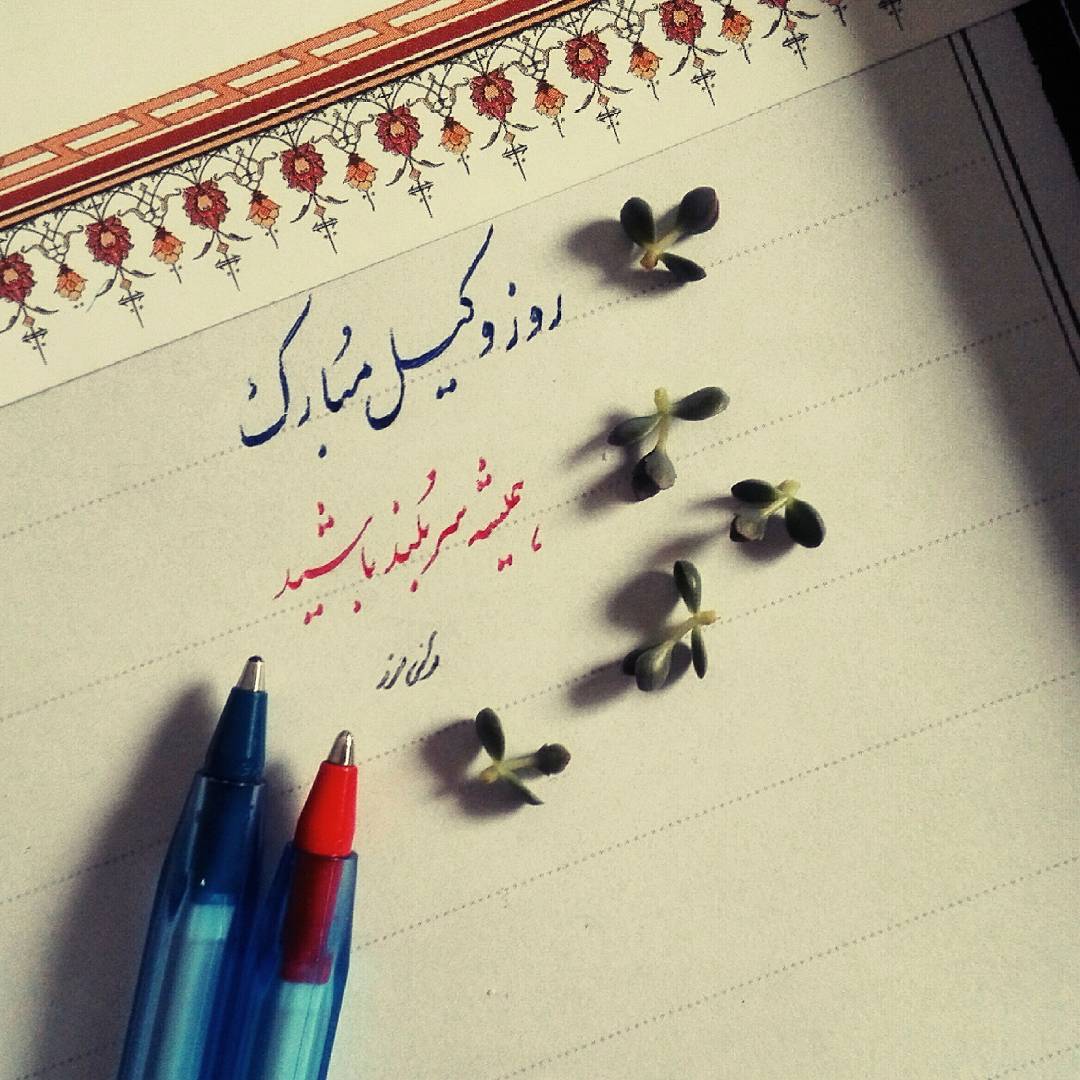 روز وکیل مُبارک
همیشه سربُلند باشید